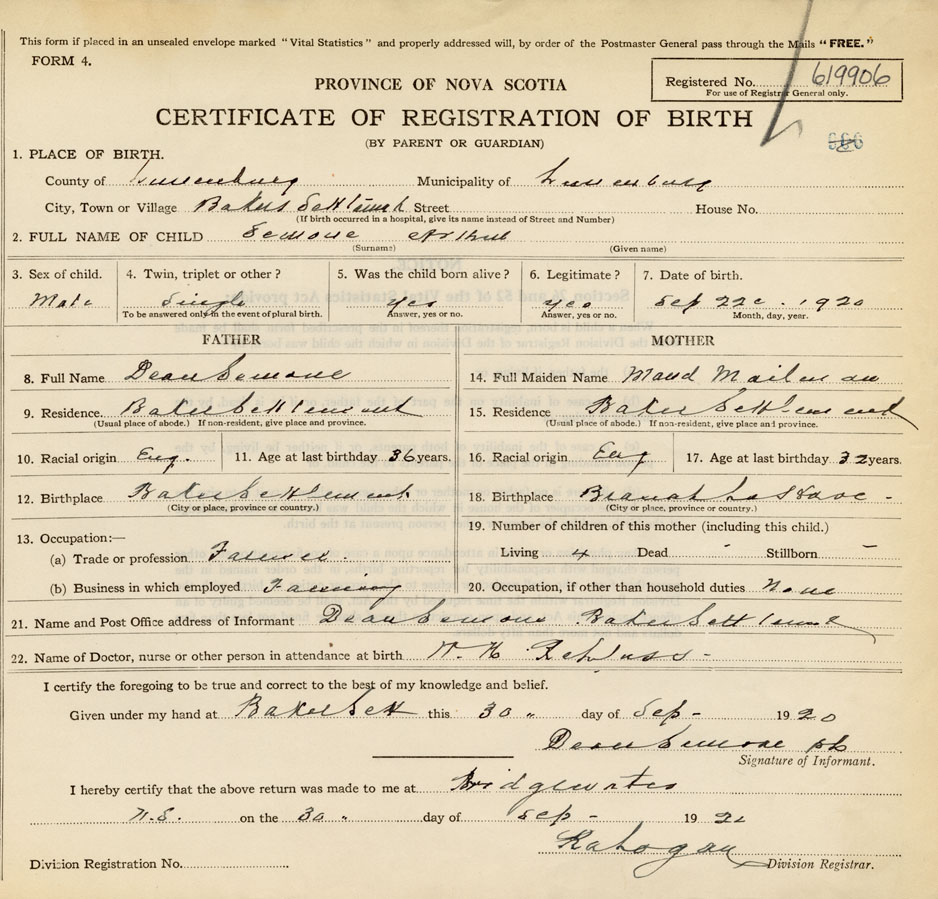 This form if placed in an unsealed envelope marked "Vital Statistics" and properly addressed will, by order of the Postmaster General pass through the Mails "FREE."
FORM 4.
Registered No. 619906
For use of Registrar General only.
PROVINCE OF NOVA SCOTIA
CERTIFICATE OF REGISTRATION OF BIRTH
(BY PARENT OR GUARDIAN)
666
1. PLACE OF BIRTH.
County of Lunenburg Municipality of Lunenburg
City, Town or Village Bakers Settlement Street House No.
(If birth occurred in a hospital, give its name instead of Street and Number)
2. FULL NAME OF CHILD Semone Arthur
(Surname) (Given name)
3. Sex of child. 4. Twin, triplet or other? 5. Was the child born alive? 6. Legitimate? 7. Date of birth.
Male Single yes yes Sep 22 1920
To be answered only in the event of plural birth. Answer, yes or no. Answer, yes or no. Month, day, year.
FATHER MOTHER
8. Full Name Dean Semone 14. Full Maiden Name Maud Mailman
9. Residence. Baker Settlement 15. Residence Baker Settlement
(Usual place of abode.) If non-resident, give place and province. (Usual place of abode.) If non-resident, give place and province.
10. Racial origin Eng. 11. Age at last birthday 36 years. 16. Racial origin Eng 17. Age at last birthday 32 years.
12. Birthplace Baker Settlement 18. Birthplace Branch LaHave -
(City or place, province or country.) (City or place, province or country.)
19. Number of children of this mother (including this child.)
13. Occupation:—
(a) Trade or profession Farmer Living 4 Dead - Stillborn -
(b) Business in which employed Farming 20. Occupation, if other than household duties None
21. Name and Post Office address of Informant Dean Semone Baker Settlement
22. Name of Doctor, nurse or other person in attendance at birth
I certify the foregoing to be true and correct to the best of my knowledge and belief.
Given under my hand at Baker Sett this 30 " day of Sep - 1920
Dean Semone
Signature of Informant.
I hereby certify that the above return was made to me at Bridgewater
N.S. on the 30 " day of Sep - 19
Division Registration No. Division Registrar.